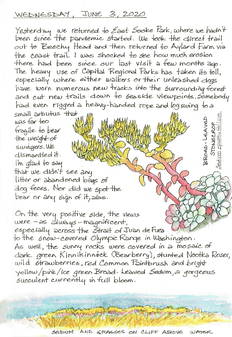 WEDNESDAY, JUNE 3, 2020
Yesterday we returned to East Sooke Park, where we hadn't
been since the pandemic started. We took the direct trail
out to Beechy Head and then returned to Aylard Farm via
the coast trail. I was shocked to see how much erosion
there had been since our last visit a few months ago.
The heavy use of Capital Regional Parks has taken its toll,
especially where either walkers or their unleashed dogs
have worn numerous new tracks into the surrounding forest
and cut new trails down to seaside viewpoints. Somebody
had even rigged a heavy-handed rope and log swing to a
small arbutus that
was far too
fragile to bear
the weight of
swingers. We
dismantled it.
I'm glad to say
that we didn't see any
litter or abandoned bags of
dog feces. Nor did we spot the
bear or any sign of it.
BROAD-LEAVED
STONECROP
Sedum spathulifolium
On the very positive side, the views
were - as always - magnificent,
especially across the Strait of Juan de Fuca
to the snow-covered Olympic Range in Washington.
As well, the sunny rocks were covered in a mosaic of
dark green Kinnikinnick (Bearberry), stunted Nootka Roses,
wild strawberries, red Common Paintbrush and bright
yellow/pink/ice green Broad-Leaved Sedum, a gorgeous
succulent currently in full bloom.
SEDUM AND GRASSES ON CLIFF ABOVE WATER